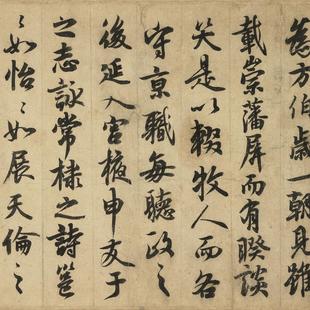 為方伯歲一朝見雖
載崇藩屏而有睽談
笑是以輟牧人而各
守京職每聽政之
後延入宮掖申友于
之志詠常棣之詩邕
〻如怡〻如展天倫之